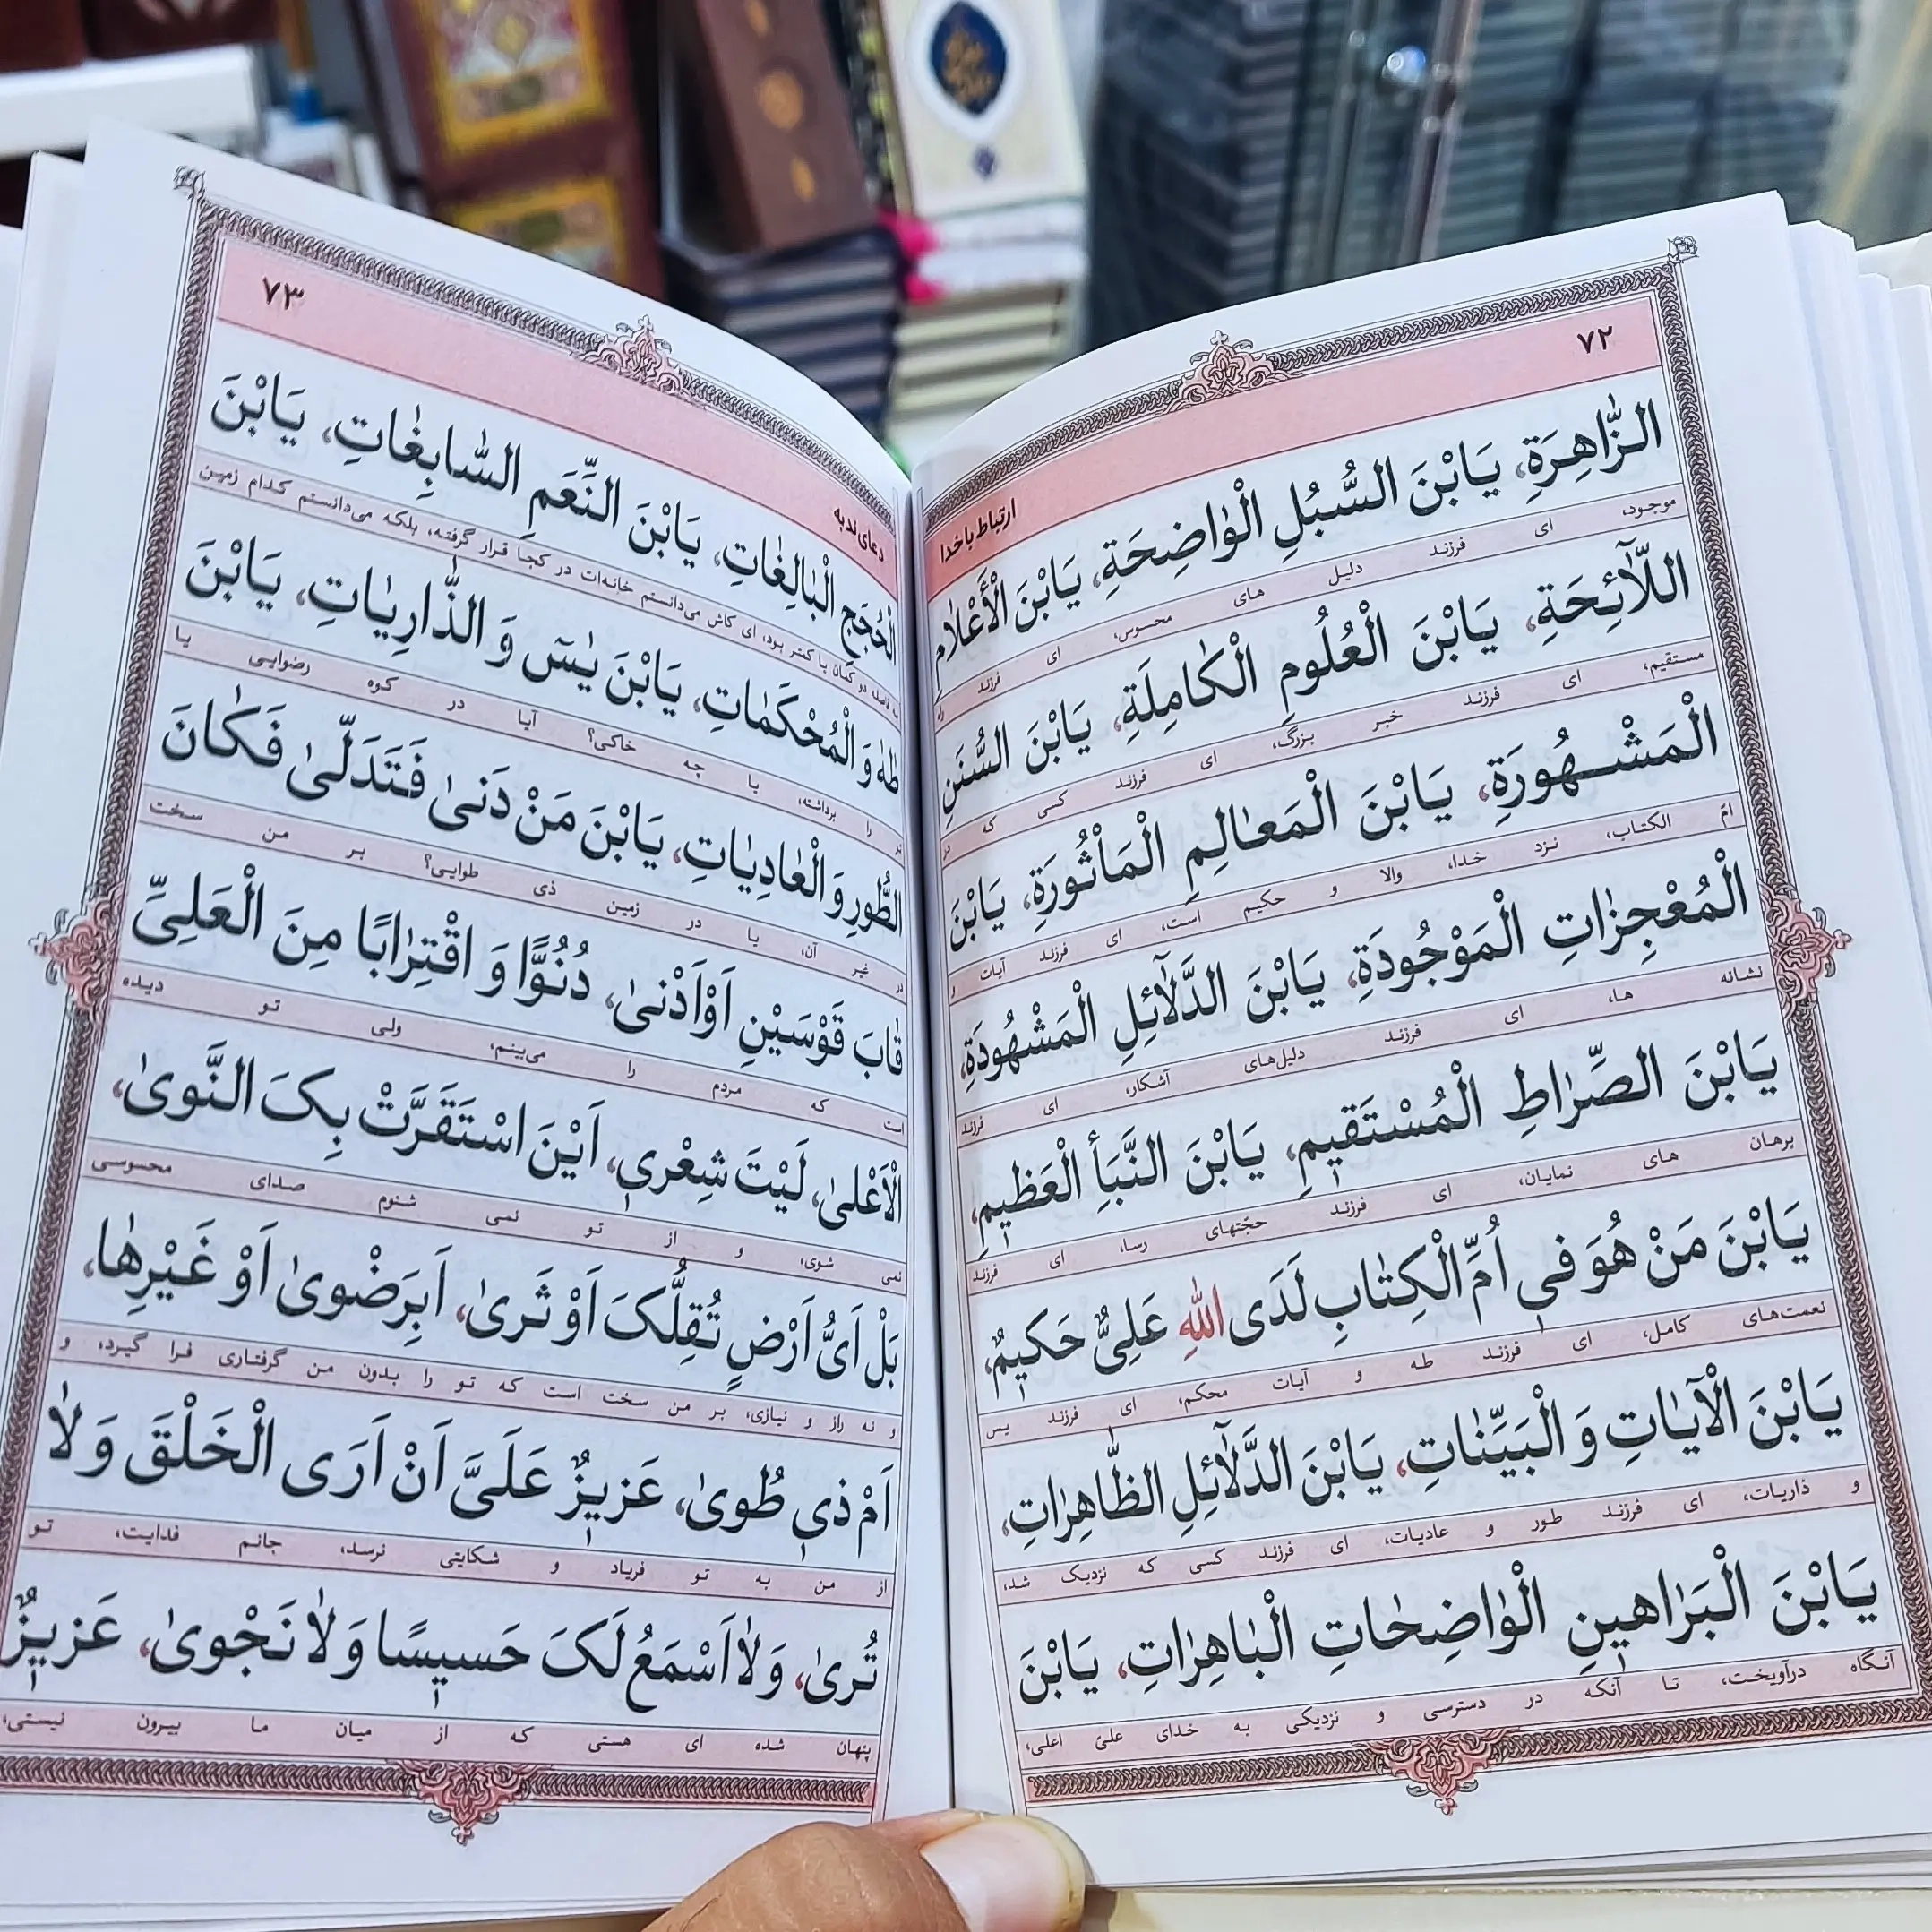 ۷۲
ارتباط با خدا
الزّٰاهِرَةِ، یَابْنَ السُّبُلِ الْوٰاضِحَةِ، یَابْنَ الْأَعْلاٰمِ
موجود، ای فرزند دلیل های محسوس، ای فرزند راه
اللّٰآئِحَةِ، یَابْنَ الْعُلُومِ الْکٰامِلَةِ، یَابْنَ السُّنَنِ
مستقیم، ای فرزند خبر بزرگ، ای فرزند کسی که در
الْمَشْهُورَةِ، یَابْنَ الْمَعٰالِمِ الْمَأْثُورَةِ، یَابْنَ
امّ الکتاب، نزد خدا، والا و حکیم است، ای فرزند آیات و
الْمُعْجِزٰاتِ الْمَوْجُودَةِ، یَابْنَ الدَّلٰآئِلِ الْمَشْهُودَةِ،
نشانه ها، ای فرزند دلیل‌های آشکار، ای فرزند
یَابْنَ الصِّرٰاطِ الْمُسْتَقیمِ، یَابْنَ النَّبَأِ الْعَظیمِ،
برهان های نمایان، ای فرزند حجّتهای رسا، ای فرزند
یَابْنَ مَنْ هُوَ فی اُمِّ الْکِتٰابِ لَدَی اللهِ عَلِیٌّ حَکیمٌ،
نعمت‌های کامل، ای فرزند طه و آیات محکم، ای فرزند یس
یَابْنَ الْآیٰاتِ وَ الْبَیِّنٰاتِ، یَابْنَ الدَّلٰآئِلِ الظّٰاهِرٰاتِ،
و ذاریات، ای فرزند طور و عادیات، ای فرزند کسی که نزدیک شد،
یَابْنَ الْبَرٰاهینِ الْوٰاضِحٰاتِ الْبٰاهِرٰاتِ، یَابْنَ
آنگاه درآویخت، تا آنکه در دسترسی و نزدیکی به خدای علیّ اعلی،
۷۳
دعای ندبه
الْحُجَجِ الْبٰالِغٰاتِ، یَابْنَ النِّعَمِ السّٰابِغٰاتِ، یَابْنَ
به فاصله دو کمان یا کمتر بود، ای کاش می‌دانستم خانه‌ات در کجا قرار گرفته، بلکه می‌دانستم کدام زمین
طٰهٰ وَ الْمُحْکَمٰاتِ، یَابْنَ یٰسٓ وَ الذّٰارِیٰاتِ، یَابْنَ
تو را برداشته، یا چه خاکی؟ آیا در کوه رضوایی یا
الطُّورِ وَ الْعٰادِیٰاتِ، یَابْنَ مَنْ دَنیٰ فَتَدَلّیٰ فَکٰانَ
در غیر آن، یا در زمین ذی طوایی؟ بر من سخت
قٰابَ قَوْسَیْنِ اَوْ اَدْنیٰ، دُنُوًّا وَ اقْتِرٰابًا مِنَ الْعَلِیِّ
است که مردم را می‌بینم، ولی تو دیده
الْاَعْلیٰ، لَیْتَ شِعْری، اَیْنَ اسْتَقَرَّتْ بِکَ النَّویٰ،
نمی شوی، و از تو نمی شنوم صدای محسوسی
بَلْ اَیُّ اَرْضٍ تُقِلُّکَ اَوْ ثَریٰ، اَبِرَضْویٰ اَوْ غَیْرِهٰا،
و نه راز و نیازی، بر من سخت است که تو را بدون من گرفتاری فرا گیرد، و
اَمْ ذی طُویٰ، عَزیزٌ عَلَیَّ اَنْ اَرَی الْخَلْقَ وَ لاٰ
از من به تو فریاد و شکایتی نرسد، جانم فدایت، تو
تُریٰ، وَ لاٰ اَسْمَعُ لَکَ حَسیسًا وَ لاٰ نَجْویٰ، عَزیزٌ
پنهان شده ای هستی که از میان ما بیرون نیستی،